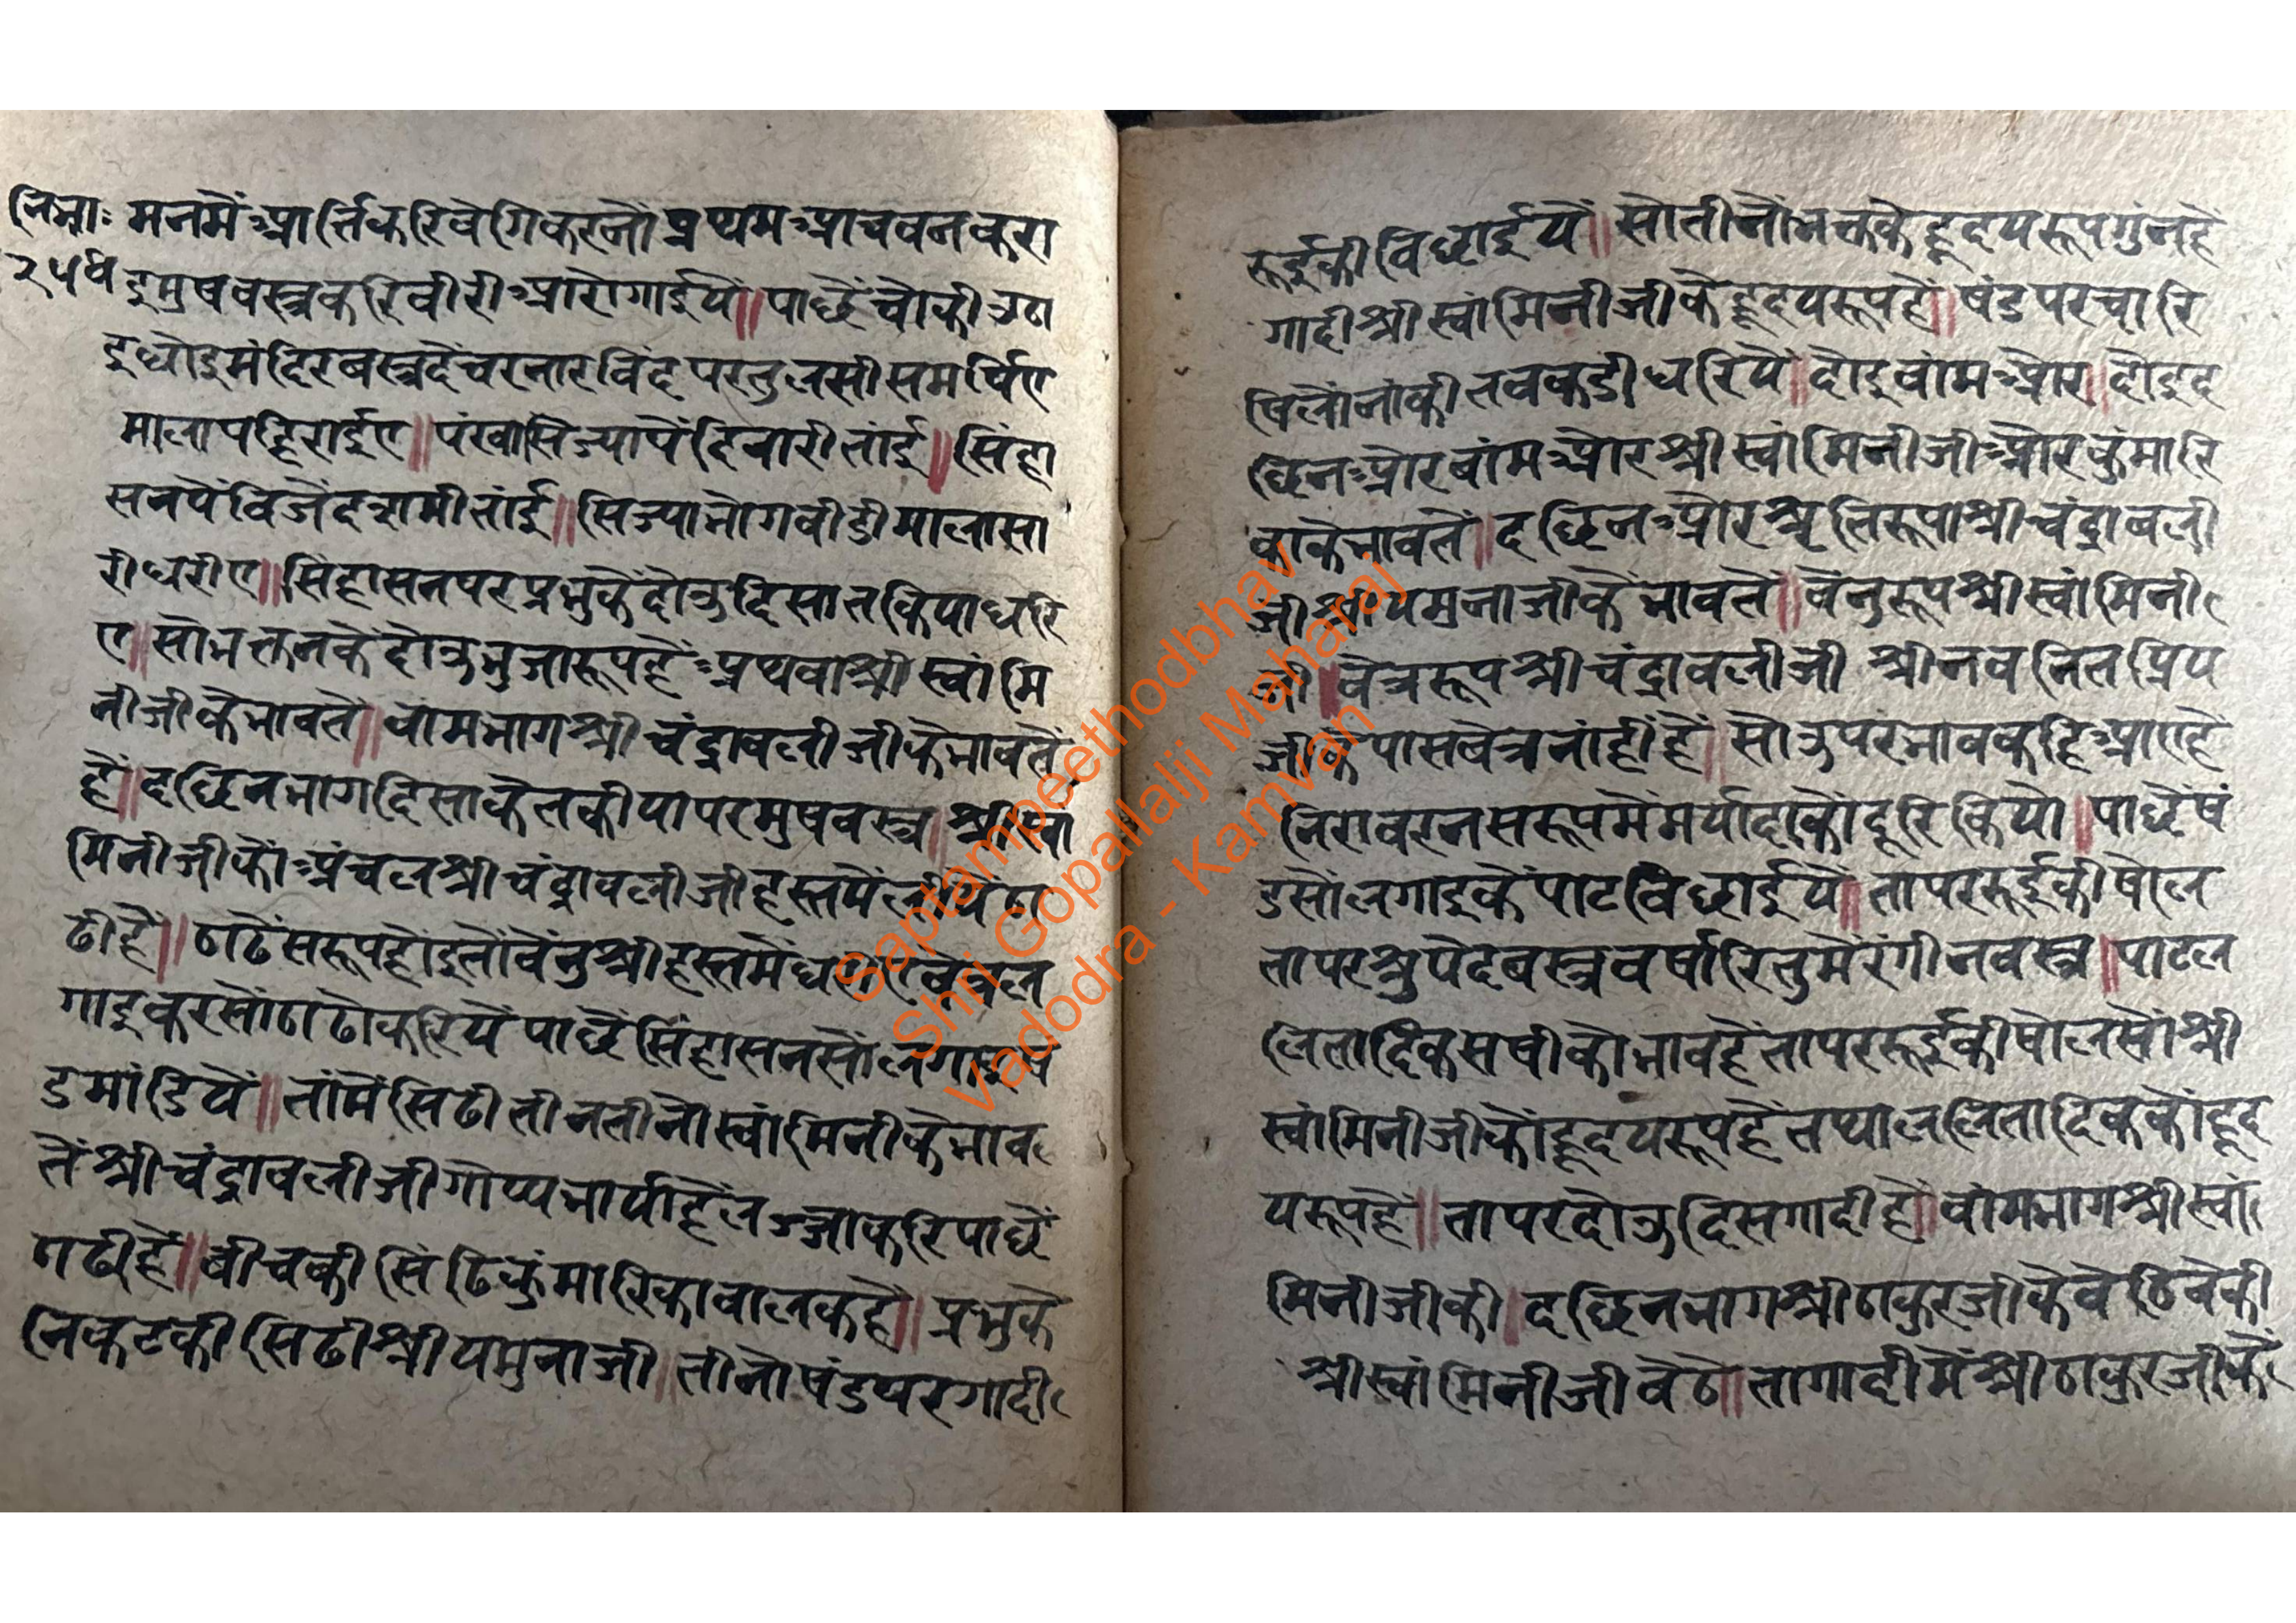 नि.भा॰ मनमैं आर्त्तिकरि वेगि करनौं प्रथम आचवन करा
२५४ इ मुषवस्त्र करि वीरी आरोगाईयै॥ पाछैं चौकी उठा
इ धोइ मंदिर बस्त्र दै चरनारविंद पर तुलसी समर्पिए
माला पहिराईए॥ पंखा सिज्या पैं दिवारी तांई॥ सिंहा
सन पैं विजै दसमी तांई॥ सिज्या भोग वीडी माला सा
री धरीए॥ सिंहासन पर प्रभुकें दोऊ दिसा तकिया धरि
ए॥ सो भक्तन के दोऊ भुजा रूप हैं अथवा श्री स्वांमि
नीजी के भावतें॥ वांम भाग श्री चंद्रावलीजी के भावतें
हैं॥ दछिन भाग दिसा के तकीया पर मुषवस्त्र॥ श्री स्वां
मिनीजी कौ अंचल श्री चंद्रावलीजी हस्त मैं लीयें ठा
ढी हैं॥ ठाढें सरूप होंइ तौ वेंनु श्री हस्त में
गाइ कर सों ठाढौ करियै पाछें सिंहासन सों लगाइ षं
ड मांडियै॥ तांमें सिढी तीन तीनौ स्वांमिनी के भाव
तें श्री चंद्रावलीजी गोप्य भार्या हैं लज्जा करि पाछें
ठाढी हैं॥ वीच की सिंढि कुंमारिका वालक है॥ प्रभुके
निकट की सिढी श्री यमुनाजी॥ तीनौ षंड पर गादी
रूई की विछाईयै॥ सो तीनौ भक्त के हृदय रूप गुंन हैं
गादी श्री स्वांमिनीजी के हृदय रूप हैं॥ षंड पर चारि
षिलौंनांकी तवकडी धरियै॥ दोइ वांम और॥ दोइ द
छिन और वांम और श्री स्वांमिनीजी और कुंमारि
काके भावतें॥ दछिन और श्रुतिरूपा श्री चंद्रावली
जी श्री यमुनाजी के भावतें॥ वेनु रूप श्री स्वांमिनी
जी॥ वेत्र रूप श्री चंद्रावलीजी श्री नवनित प्रिय
जीके पास बेत्र नांहीं हैं॥ सो उपर भाव कहि आए हैं
निरावरन सरूप में मर्यादाकों दूरि कियौ॥ पाछें षं
डसों लगाइकें पाट विछाईयै॥ तापर रूई की षोल
तापर सुपेद बस्त्र वर्षा रितु में रंगीन वस्त्र॥ पाट ल
लितादिक सषी कौ भाव हैं तापर रूई की षोल सों श्री
स्वांमिनीजी कों हृदय रूप हैं तथा ललितादिक कों हृद
य रूप हैं॥ तापर दोऊ दिस गादी हैं॥ वांम भाग श्री स्वां
मिनीजी की॥ दछिन भाग श्री ठाकुरजी के वेठिवेकी
श्री स्वांमिनीजी वेठे॥ ता गादी में श्री ठाकुरजी कें